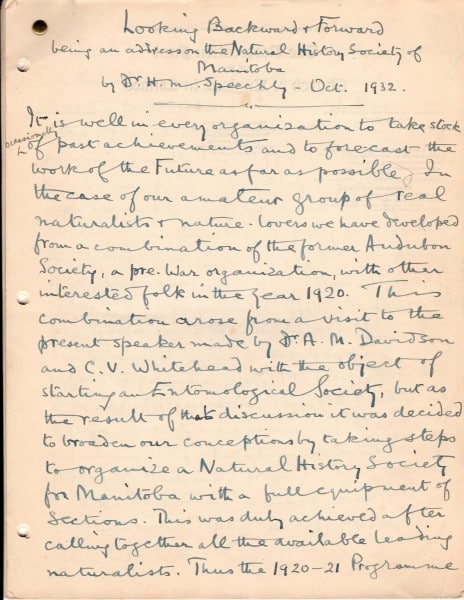 Looking Backward & Forward
being an address on the Natural History Society of
Manitoba
by Dr H. M. Speechly - Oct. 1932.
It is well in every organization to take stock
occasionally
of past achievements and to forecast the
work of the Future as far as possible. In
the case of our amateur group of real
naturalists & nature-lovers we have developed
from a combination of the former Audubon
Society, a pre-War organization, with other
interested folk in the year 1920. This
combination arose from a visit to the
present speaker made by Dr. A. M. Davidson
and C. V. Whitehead with the object of
starting an Entomological Society, but as
the result of that discussion it was decided
to broaden our conceptions by taking steps
to organize a Natural History Society
for Manitoba with a full equipment of
Sections. This was duly achieved after
calling together all the available leading
naturalists. Thus the 1920-21 Programme